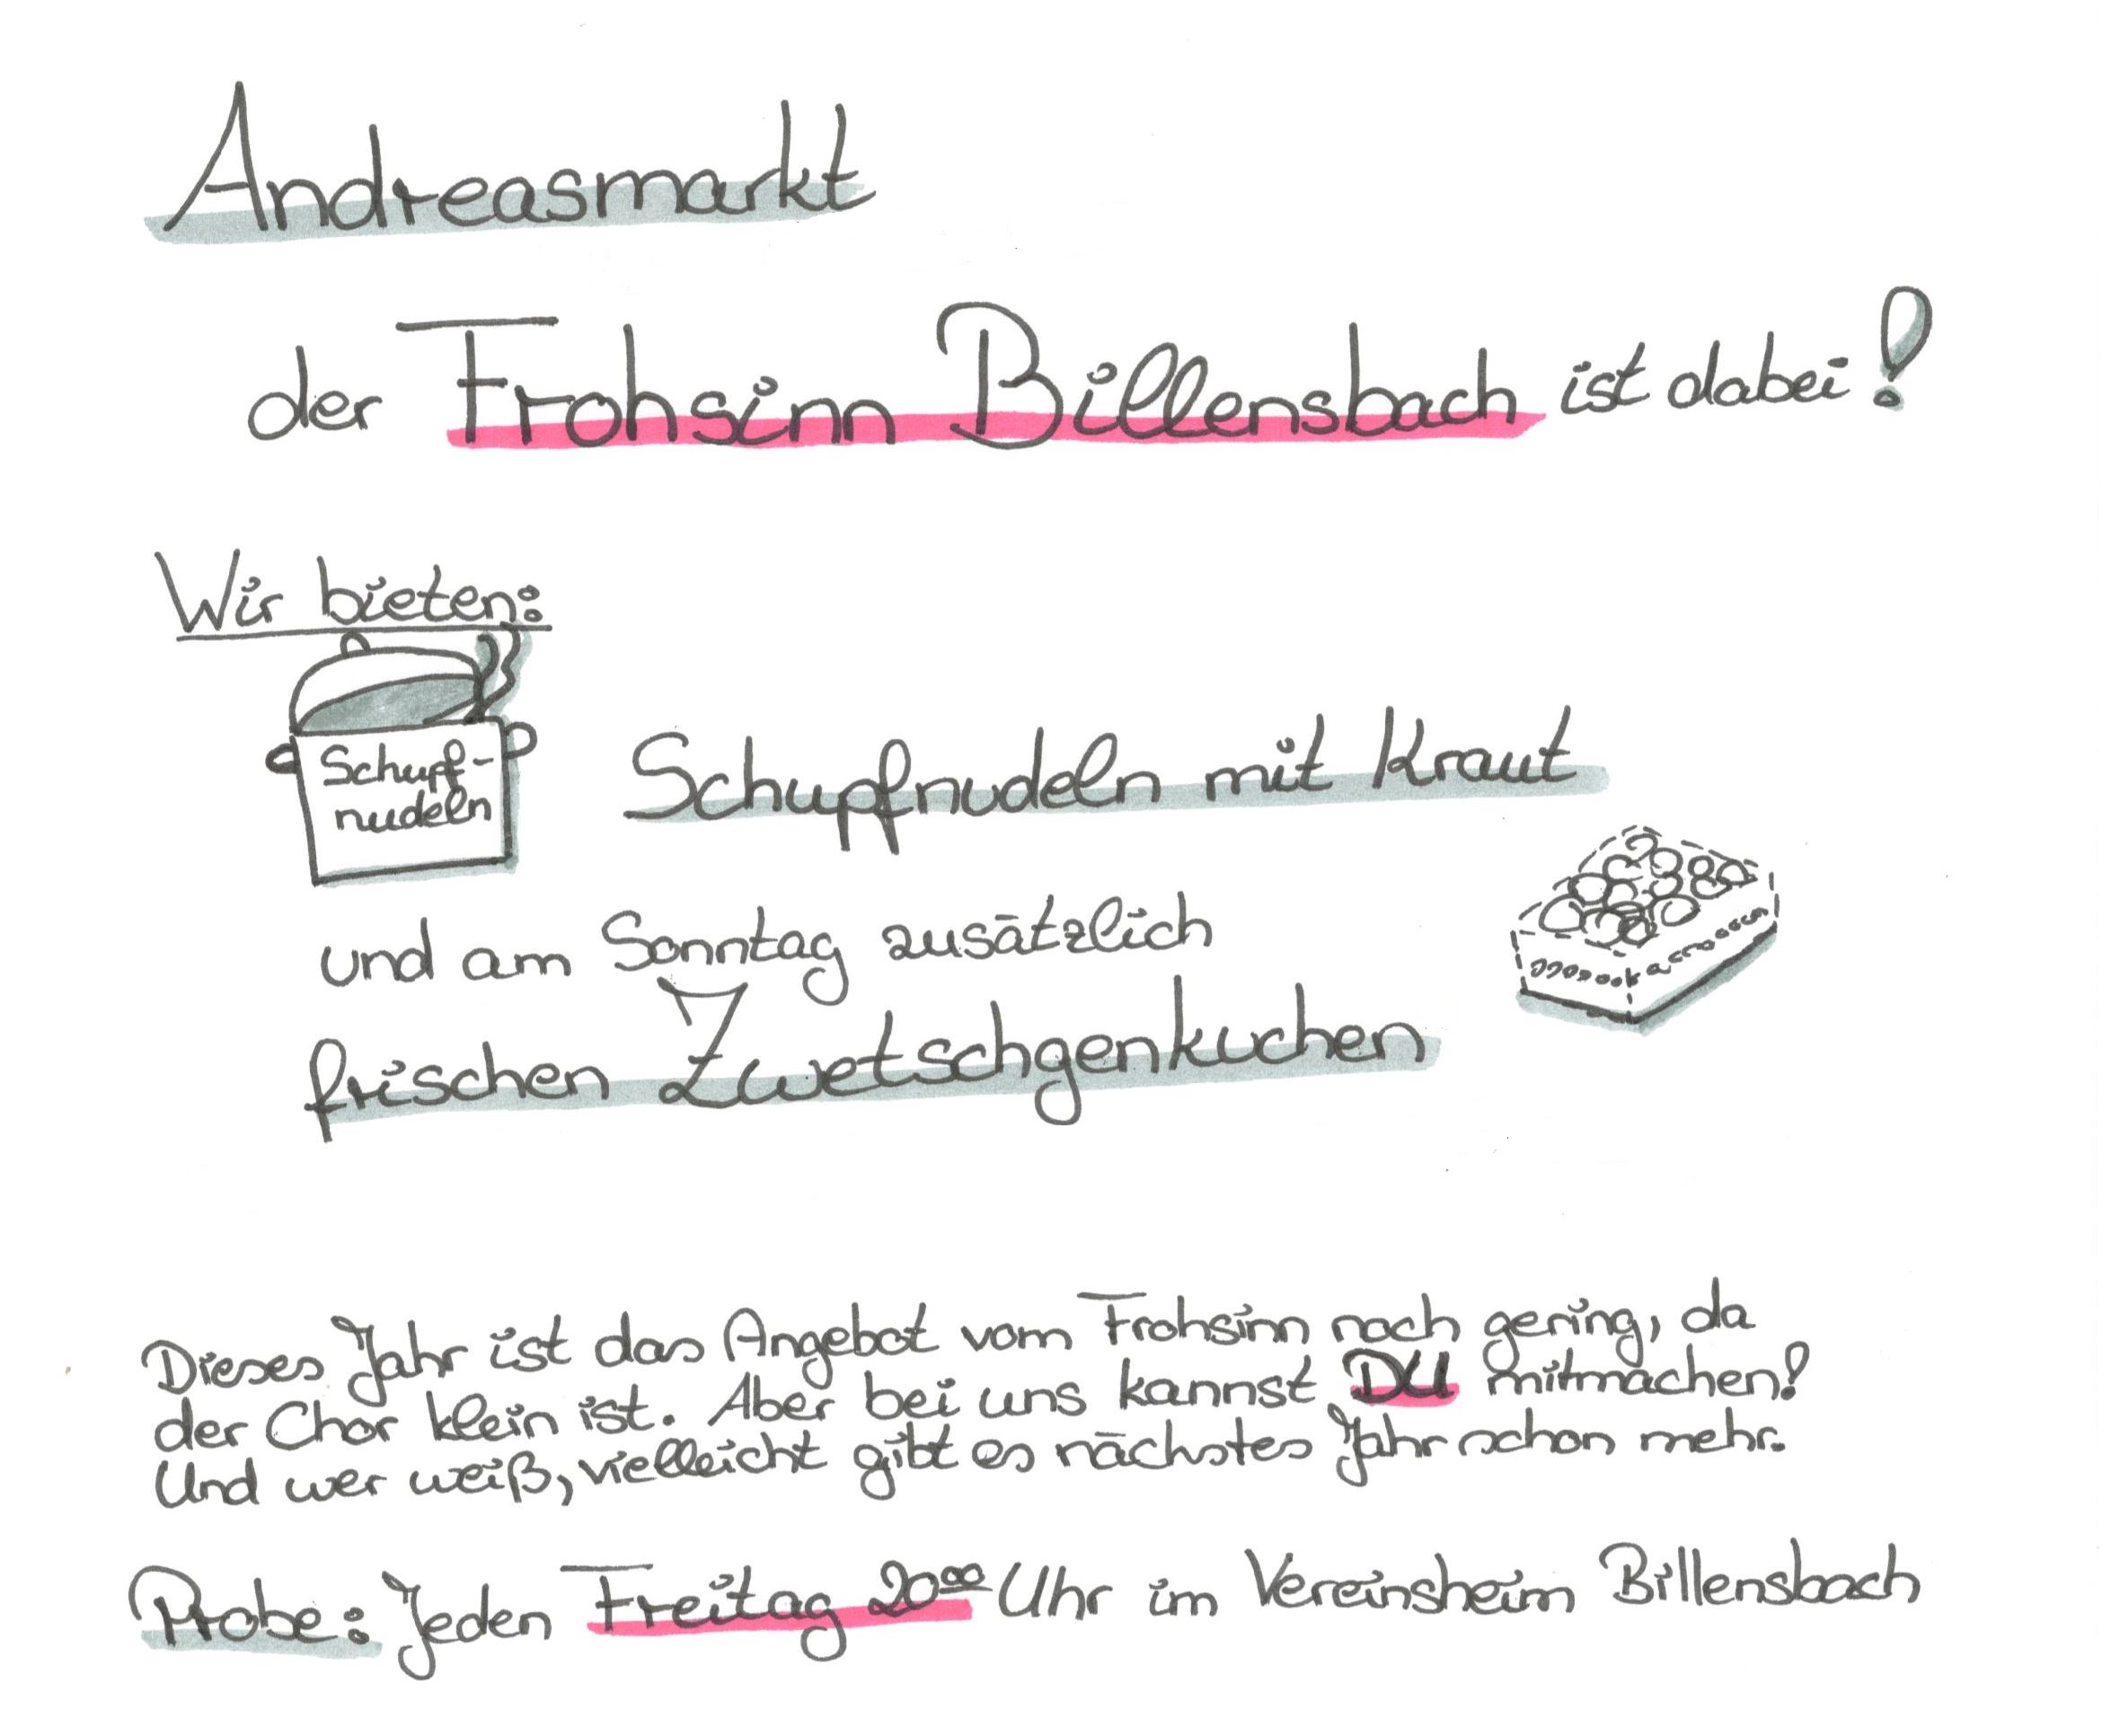 Andreasmarkt
der Frohsinn Billensbach ist dabei!
Wir bieten:
Schupf-
nudeln
Schupfnudeln mit Kraut
und am Sonntag zusätzlich
frischen Zwetschgenkuchen
Dieses Jahr ist das Angebot vom Frohsinn noch gering, da
der Chor klein ist. Aber bei uns kannst DU mitmachen!
Und wer weiß, vielleicht gibt es nächstes Jahr schon mehr.
Probe: Jeden Freitag 20⁰⁰ Uhr im Vereinsheim Billensbach